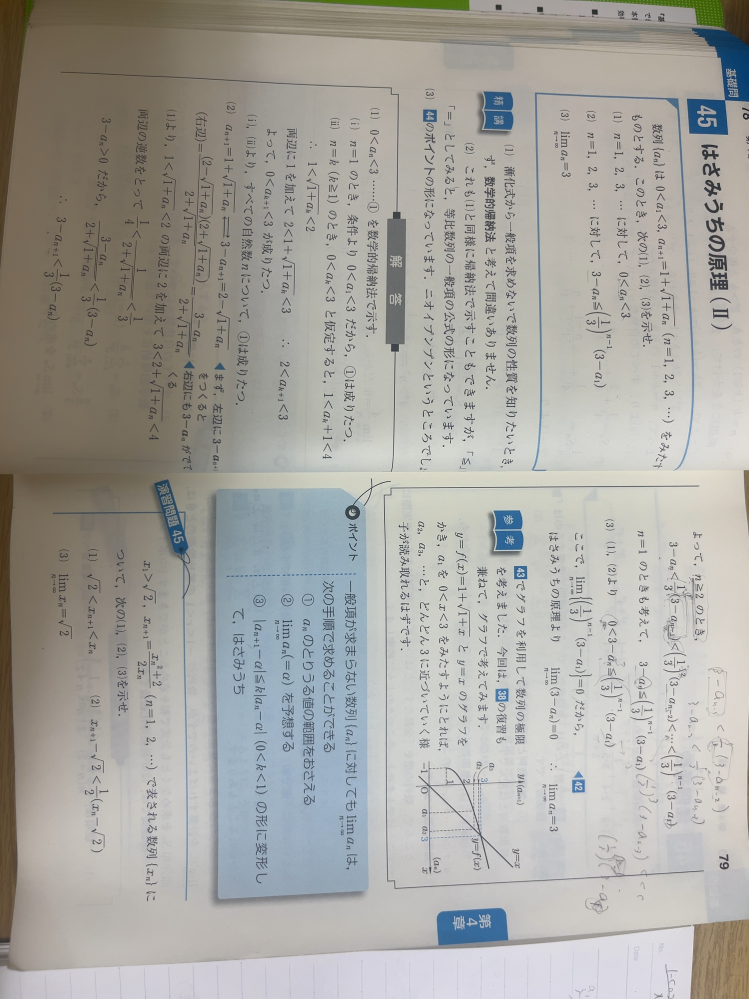 基礎問
45 はさみうちの原理(Ⅱ)
数列{aₙ}は 0<a₁<3, aₙ₊₁=1+√(1+aₙ) (n=1, 2, 3, …) をみた
ものとする.このとき,次の(1), (2), (3)を示せ.
(1) n=1, 2, 3, … に対して,0<aₙ<3
(2) n=1, 2, 3, … に対して,3-aₙ≦(1/3)ⁿ⁻¹(3-a₁)
(3) lim_{n→∞} aₙ=3
精講
(1) 漸化式から一般項を求めないで数列の性質を知りたいとき,
ず,数学的帰納法と考えて間違いありません.
(2) これも(1)と同様に帰納法で示すこともできますが,「≦」
「=」としてみると,等比数列の一般項の公式の形になっています.
(3) 44のポイントの形になっています.ニオイプンプンというところでし
解答
(1) 0<aₙ<3 ……① を数学的帰納法で示す.
(ⅰ) n=1 のとき,条件より 0<a₁<3 だから,①は成りたつ.
(ⅱ) n=k (k≧1) のとき,0<aₖ<3 と仮定すると,1<aₖ+1<4
∴ 1<√(1+aₖ)<2
両辺に1を加えて 2<1+√(1+aₖ)<3 ∴ 2<aₖ₊₁<3
よって,0<aₖ₊₁<3 が成りたつ.
(ⅰ), (ⅱ)より,すべての自然数nについて,①は成りたつ.
(2) aₙ₊₁=1+√(1+aₙ) ⇄ 3-aₙ₊₁=2-√(1+aₙ) ◀まず,左辺に3-aₙ₊₁
をつくると
(右辺)=(2-√(1+aₙ))(2+√(1+aₙ))/(2+√(1+aₙ))=(3-aₙ)/(2+√(1+aₙ)) ◀右辺にも3-aₙがでて
くる
(1)より,1<√(1+aₙ)<2 の両辺に2を加えて 3<2+√(1+aₙ)<4
両辺の逆数をとって 1/4<1/(2+√(1+aₙ))<1/3
3-aₙ>0 だから,(3-aₙ)/(2+√(1+aₙ))<1/3(3-aₙ)
∴ 3-aₙ₊₁<1/3(3-aₙ)
79
よって,n≧2 のとき,
3-aₙ<1/3(3-aₙ₋₁)<(1/3)²(3-aₙ₋₂)<…<(1/3)ⁿ⁻¹(3-a₁)
n=1 のときも考えて,3-aₙ≦(1/3)ⁿ⁻¹(3-a₁)
(3) (1), (2)より 0<3-aₙ≦(1/3)ⁿ⁻¹(3-a₁)
ここで,lim_{n→∞}{(1/3)ⁿ⁻¹(3-a₁)}=0 だから, ◀42
はさみうちの原理より lim_{n→∞}(3-aₙ)=0 ∴ lim_{n→∞} aₙ=3
参考
43でグラフを利用して数列の極限
を考えました.今回は,38の復習も
兼ねて,グラフで考えてみます.
y=f(x)=1+√(1+x) と y=x のグラフを
かき,a₁を 0<x<3 をみたすようにとれば,
a₂, a₃, …と,どんどん3に近づいていく様
子が読み取れるはずです.
y(aₙ₊₁)
y=x
y=f(x)
a₃
a₂
3
2
1
-1
O
a₁ a₂ 3
(aₙ)
x
ポイント
一般項が求まらない数列{aₙ}に対しても lim_{n→∞} aₙ は,
次の手順で求めることができる
① aₙ のとりうる値の範囲をおさえる
② lim_{n→∞} aₙ(=α) を予想する
③ |aₙ₊₁-α|≦k|aₙ-α| (0<k<1) の形に変形し
て,はさみうち
第4章
演習問題 45
x₁>√2, xₙ₊₁=(xₙ²+2)/2xₙ (n=1, 2, …) で表される数列{xₙ}に
ついて,次の(1), (2), (3)を示せ.
(1) √2<xₙ₊₁<xₙ (2) xₙ₊₁-√2<1/2(xₙ-√2)
(3) lim_{n→∞} xₙ=√2